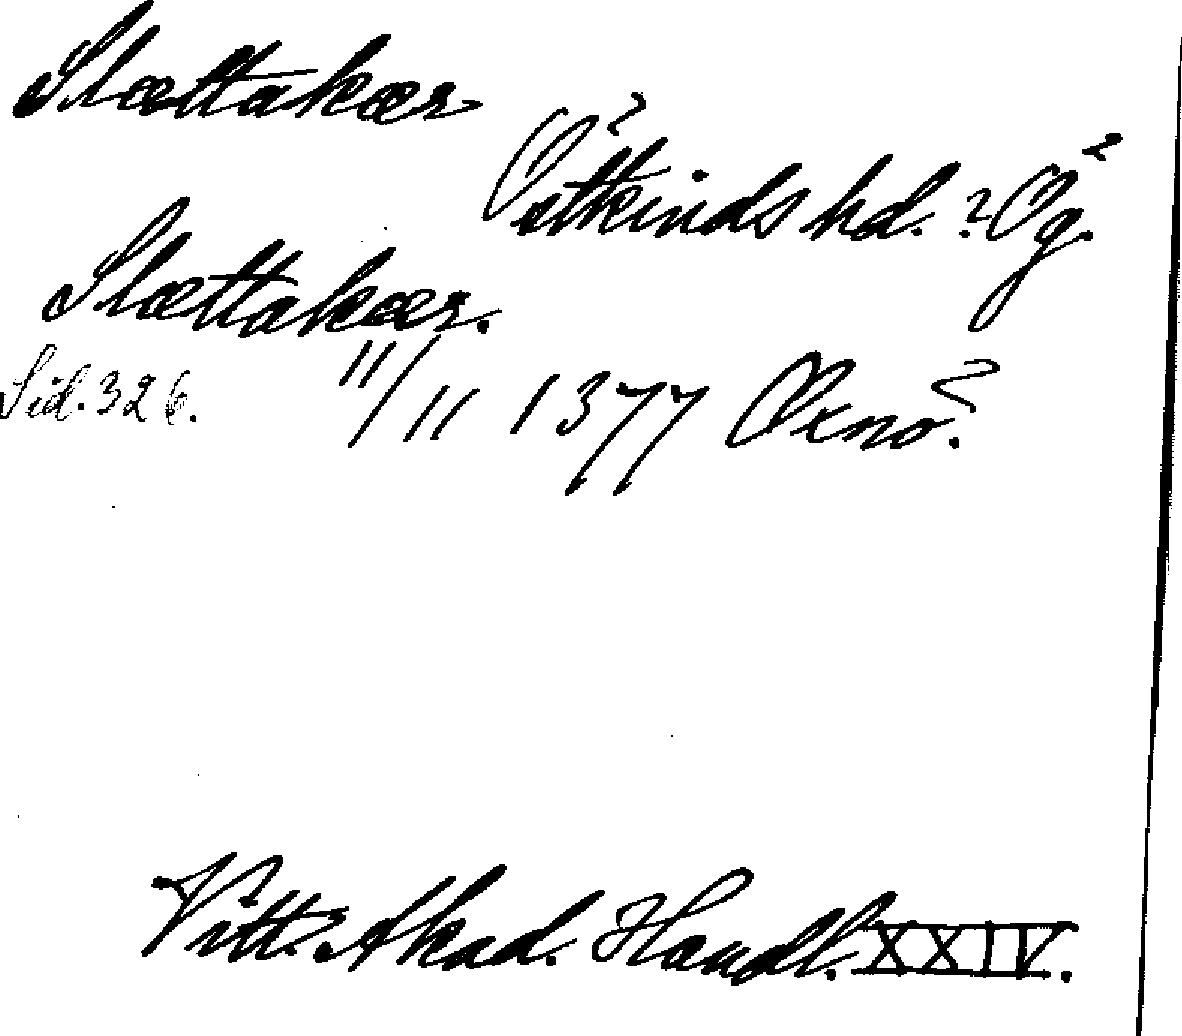 Slættakær
Östkinds hd. ? Ög.
Slættakær.
Sid. 326. 11/11 1377 Örnö.
Vitt. Akad. Handl. XXIV.